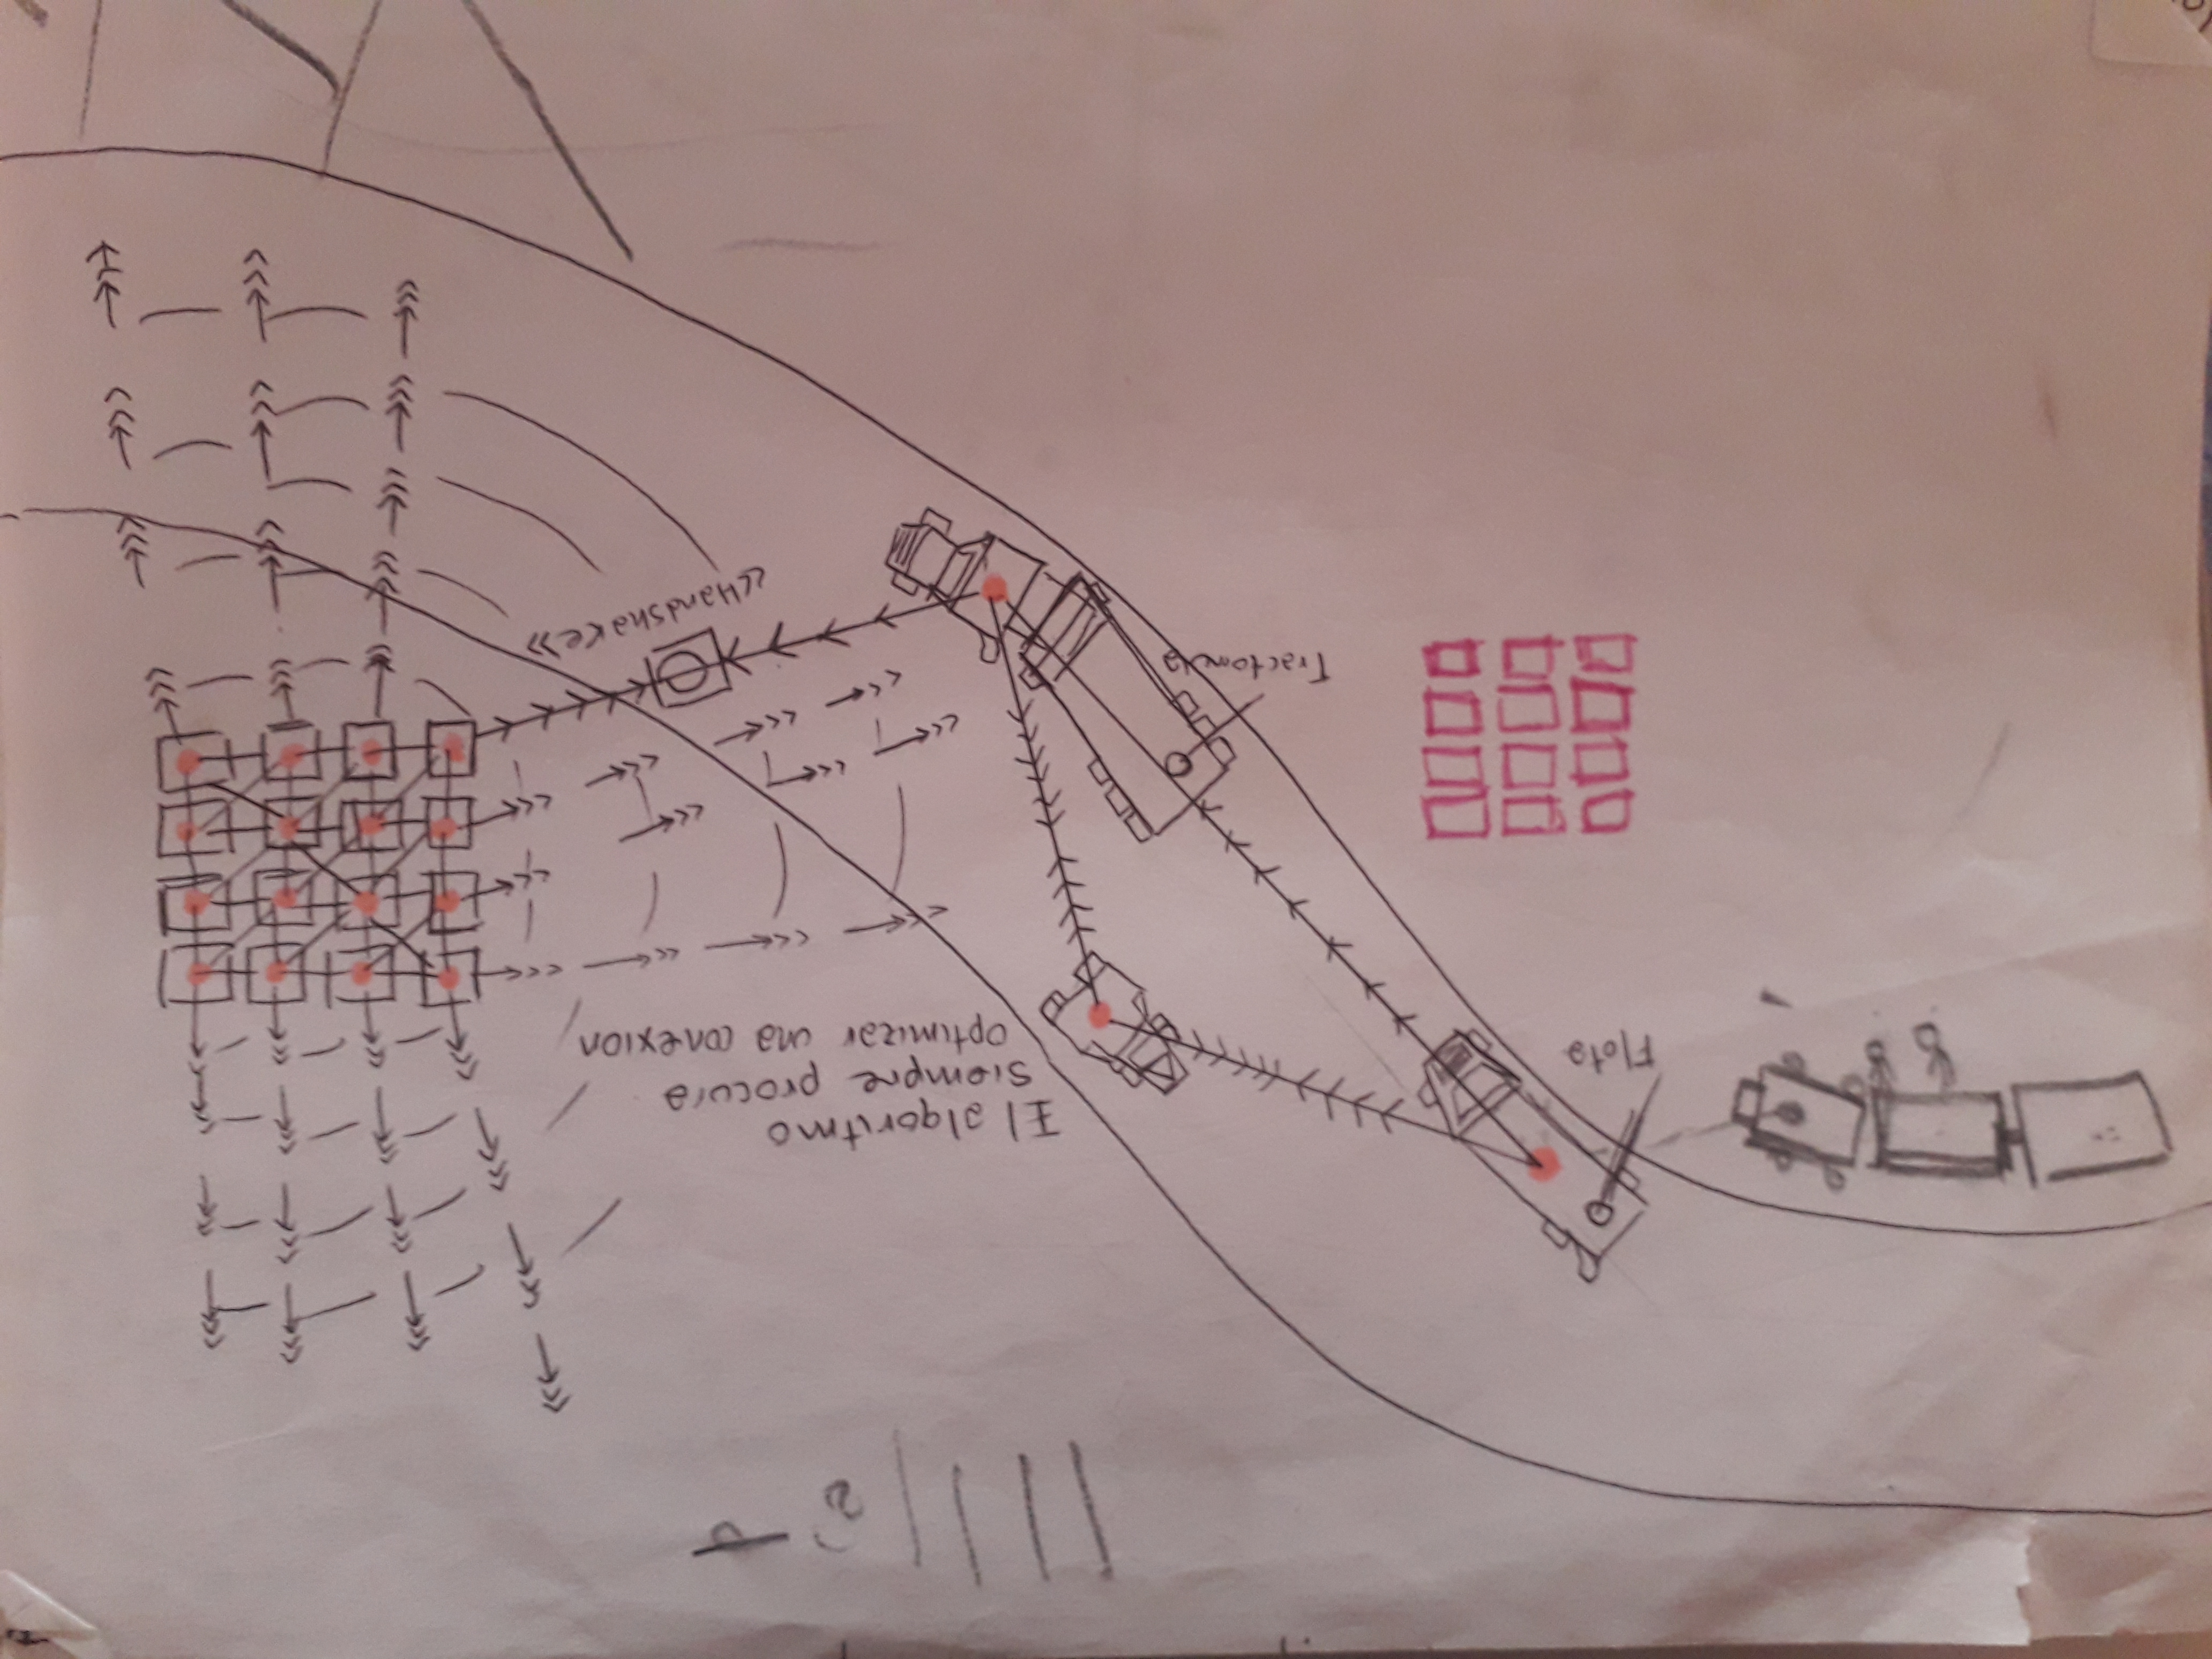 El algoritmo
siempre procura
optimizar una conexion
«Handshake»
Tractomula
Flota